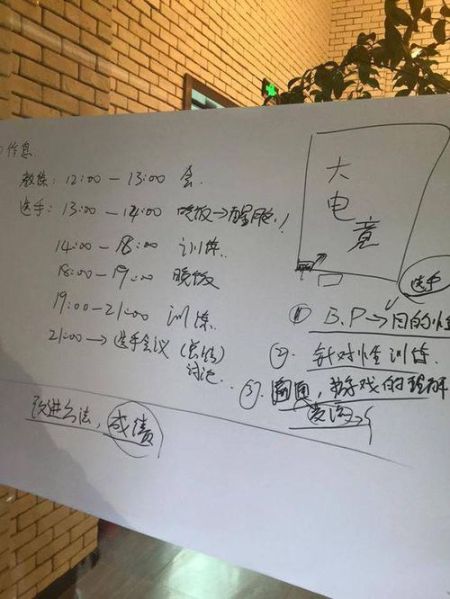 作息
教练: 12:00 — 13:00 会.
选手: 13:00 — 14:00 吃饭→醒脑!
14:00 — 18:00 训练.
18:00 — 19:00 晚饭
19:00 — 21:00 训练.
21:00 → 选手会议 (总结)
讨论..
改进方法, 成绩
大
电
竞
选手
① B.P→目的性
②. 针对性训练.
③. 游戏的理解
交流